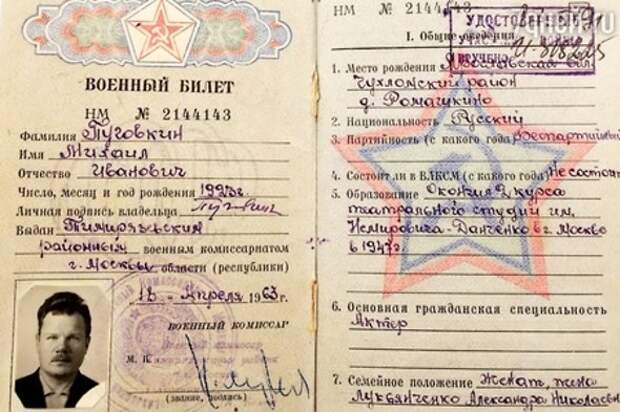 ВОЕННЫЙ БИЛЕТ
НМ № 2144143
Фамилия Пуговкин
Имя Михаил
Отчество Иванович
Число, месяц и год рождения 1923г.
Личная подпись владельца
Выдан Тимирязевским
районным военным комиссариатом
г. Москвы области (республики)
18 апреля 1963 г.
ВОЕННЫЙ КОМИССАР
М. П.
(звание, подпись)
НМ № 2144143
УДОСТОВЕРЕНИЕ
ВРУЧЕНО
I. Общие сведения
1. Место рождения
Чухломский район
д. Рамешкино
2. Национальность Русский
3. Партийность (с какого года) Беспартийный
4. Состоит ли в ВЛКСМ (с какого года) Не состоит
5. Образование Окончил 2 курса
театральной студии им.
Немировича-Данченко в г. Москве
в 1947г.
6. Основная гражданская специальность
Актер
7. Семейное положение Женат, жена
Лукьянченко Александра Николаевна